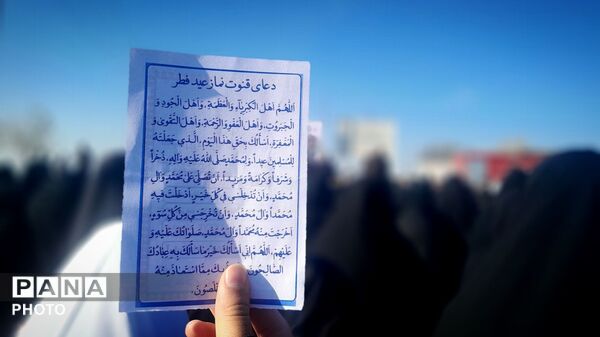 دعای قنوت نماز عید فطر
اَللّهُمَّ اَهْلَ الْكِبْرِيآءِ وَالْعَظَمَةِ، وَاَهْلَ الْجُودِ وَ
الْجَبَرُوتِ، وَاَهْلَ الْعَفْوِ وَالرَّحْمَةِ، وَاَهْلَ التَّقْوىٰ وَ
الْمَغْفِرَةِ، اَسْأَلُكَ بِحَقِّ هذَا الْيَوْمِ، اَلَّذي جَعَلْتَهُ
لِلْمُسْلِمينَ عيداً، وَلِمُحَمَّدٍ صَلَّى اللهُ عَلَيْهِ وَالِهِ، ذُخْراً
وَشَرَفاً وَكَرامَةً وَمَزيداً، اَنْ تُصَلِّيَ عَلىٰ مُحَمَّدٍ وَالِ
مُحَمَّدٍ، وَاَنْ تُدْخِلَني في كُلِّ خَيْرٍ، اَدْخَلْتَ فيهِ
مُحَمَّداً وَالَ مُحَمَّدٍ، وَاَنْ تُخْرِجَني مِنْ كُلِّ سُوءٍ،
اَخْرَجْتَ مِنْهُ مُحَمَّداً وَالَ مُحَمَّدٍ، صَلَواتُكَ عَلَيْهِ وَ
عَلَيْهِمْ، اَللّهُمَّ اِنّي اَسْأَلُكَ خَيْرَ ما سَأَلَكَ بِهِ عِبادُكَ
الصّالِحُونَ بِكَ مِمَّا اسْتَعاذَ مِنْهُ
PANA
PHOTO